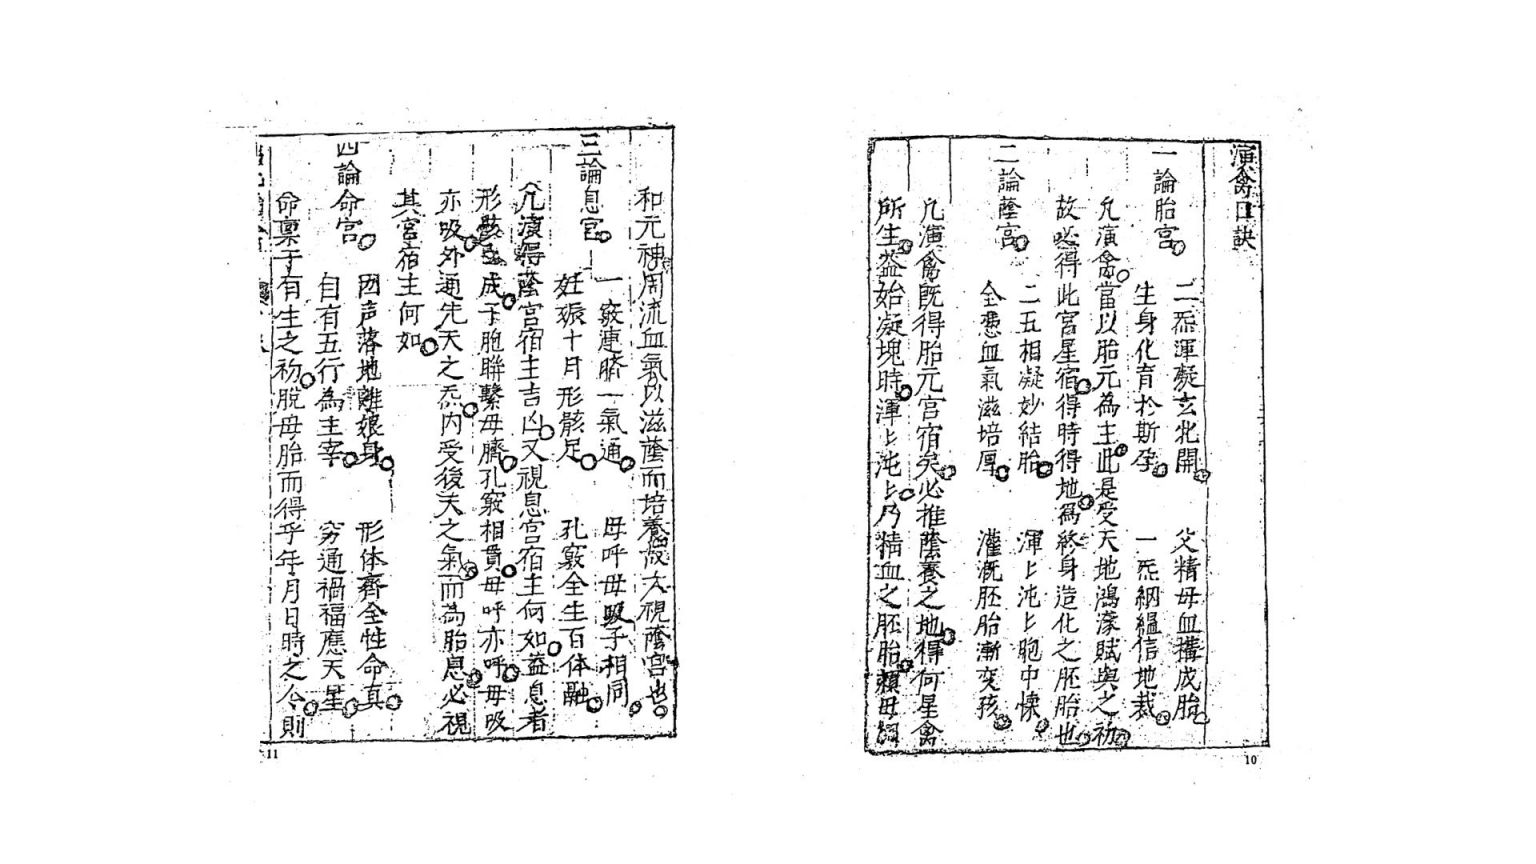 演禽口訣
一論胎宮
二炁渾凝玄牝開 父精母血搆成胎
生身化育於斯孕 一炁絪縕信地栽
凢演禽當以胎元為主此是受天地鴻濛賦與之初
故必得此宮星宿得時得地為終身造化之胚胎也
二論蔭宮
二五相凝妙結胎 渾〻沌〻胞中懐
全憑血氣滋培厚 灌溉胚胎漸变孩
凢演禽既得胎元宮宿矣必推蔭養之地得何星禽
所生盖始凝塊時渾〻沌〻乃精血之胚胎賴母
10
和元神周流血氣以滋蔭而培養故大視蔭宮也
三論息宮
一竅連臍一氣通 母呼母吸子相同
妊娠十月形骸足 孔竅全生百体融
凢演得蔭宮宿主吉凶又視息宮宿主何如益息者
形骸成于胞聯繫母臍孔竅相貫母呼亦呼母吸
亦吸外通先天之炁內受後天之氣而為胎息必視
其宮宿主何如
四論命宮
因声落地離娘身 形体齊全性命真
自有五行為主宰 穷通禍福應天星
命禀于有生之初脫母胎而得乎年月日時之令則
11